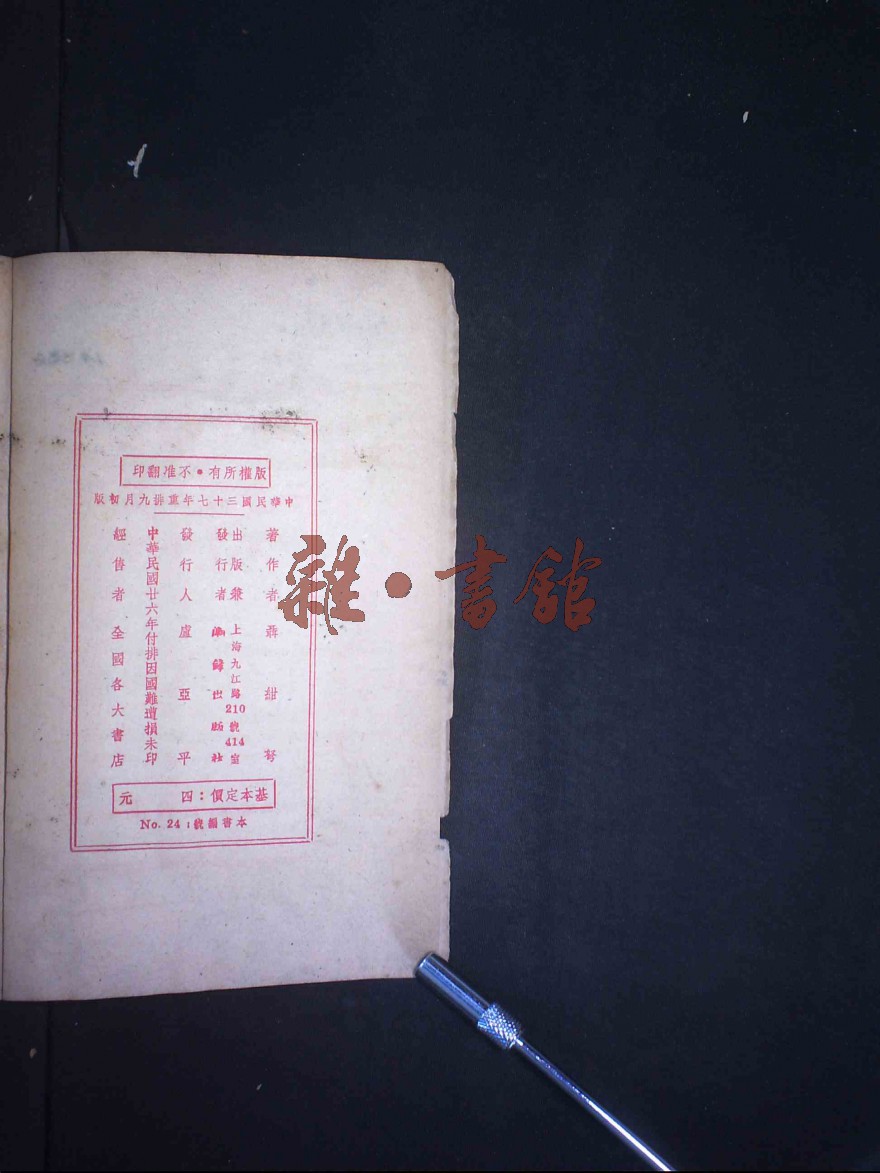 版權所有•不准翻印
中華民國三十七年重排九月初版
著作者 聶紺弩
出版兼發行者
上海九江路210號414室
出版社
發行人 盧亞平
中華民國廿六年付排因國難遭損未印
經售者 全國各大書店
基本定價：四元
本書編號：No. 24
雜•書館